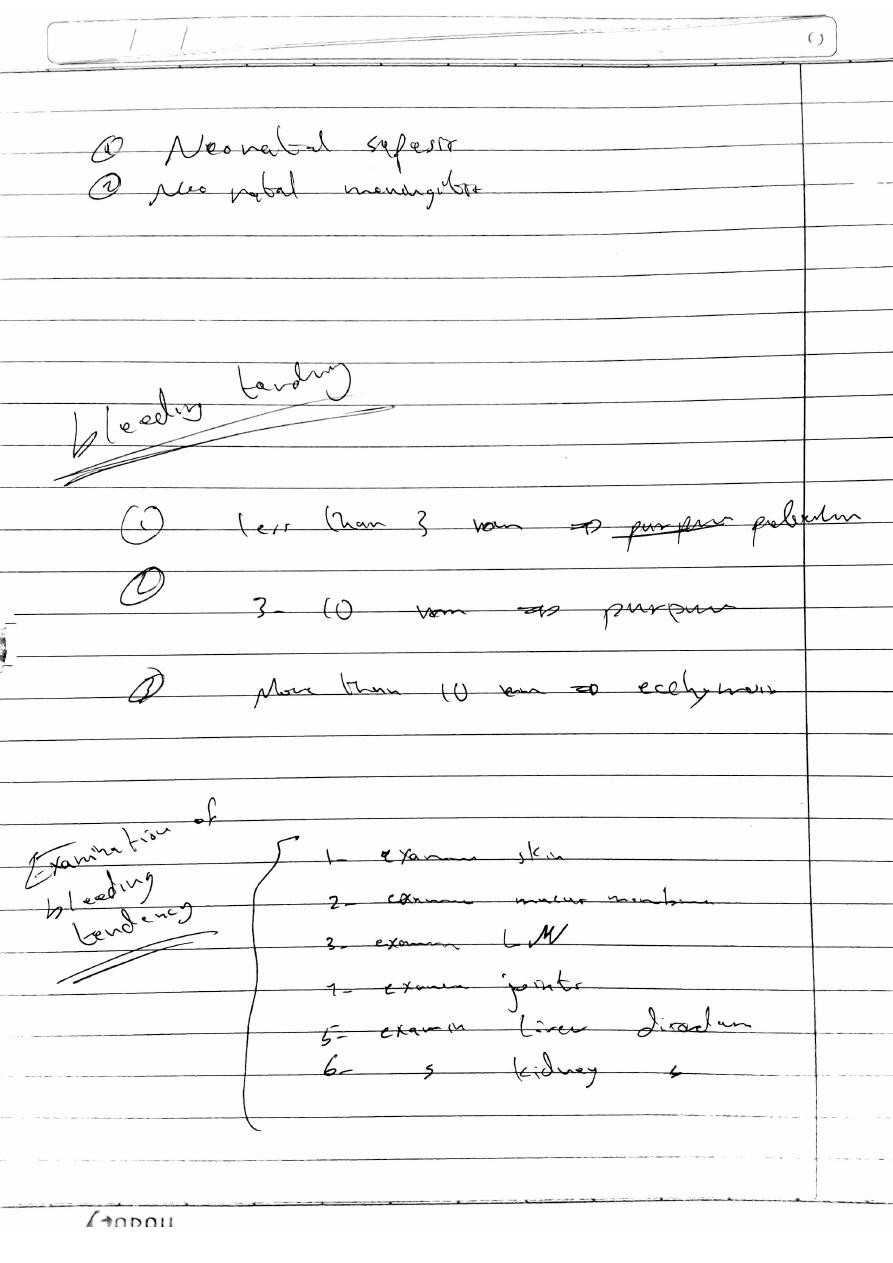 / /
( )
① Neonatal sepesis
② Neo natal meningitis
bleeding tendency
① less than 3 mm ⇒ purpura petechia
② 3- 10 mm ⇒ purpura
③ More than 10 mm ⇒ ecchymosis
Examination of
bleeding
tendency
1- examine skin
2- examine mucus membrane
3- examine LN
4- examine joints
5- examin liver disorder
6- s kidney s